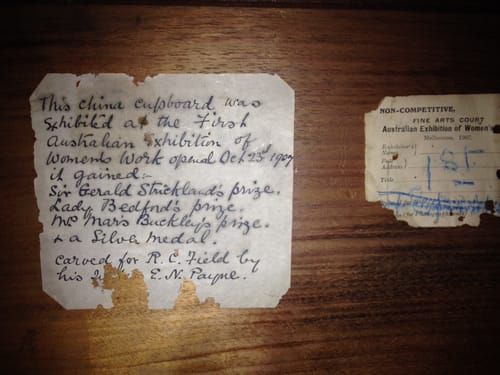 This china cupboard was
Exhibited at the First
Australian Exhibition of
Women's Work opened Oct 23rd 1907
it gained:-
Sir Gerald Strickland's prize.
Lady Bedford's prize.
Mrs Mars Buckley's prize.
& a Silver Medal.
carved for R. C. Field by
his E. N. Payne.
NON-COMPETITIVE,
FINE ARTS COURT
Australian Exhibition of Women's
Melbourne, 1907.
Exhibitor's
Name
Full
Address
Title